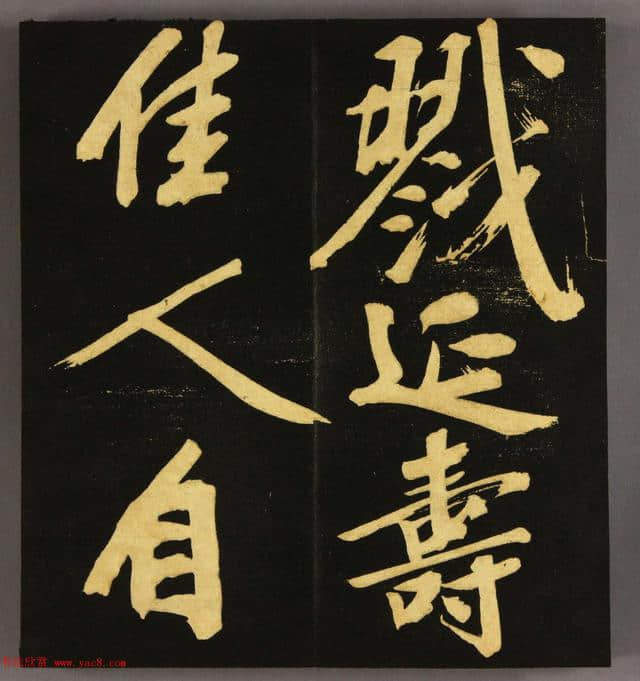 戮延壽
佳人自
书法欣赏 www.yac8.com